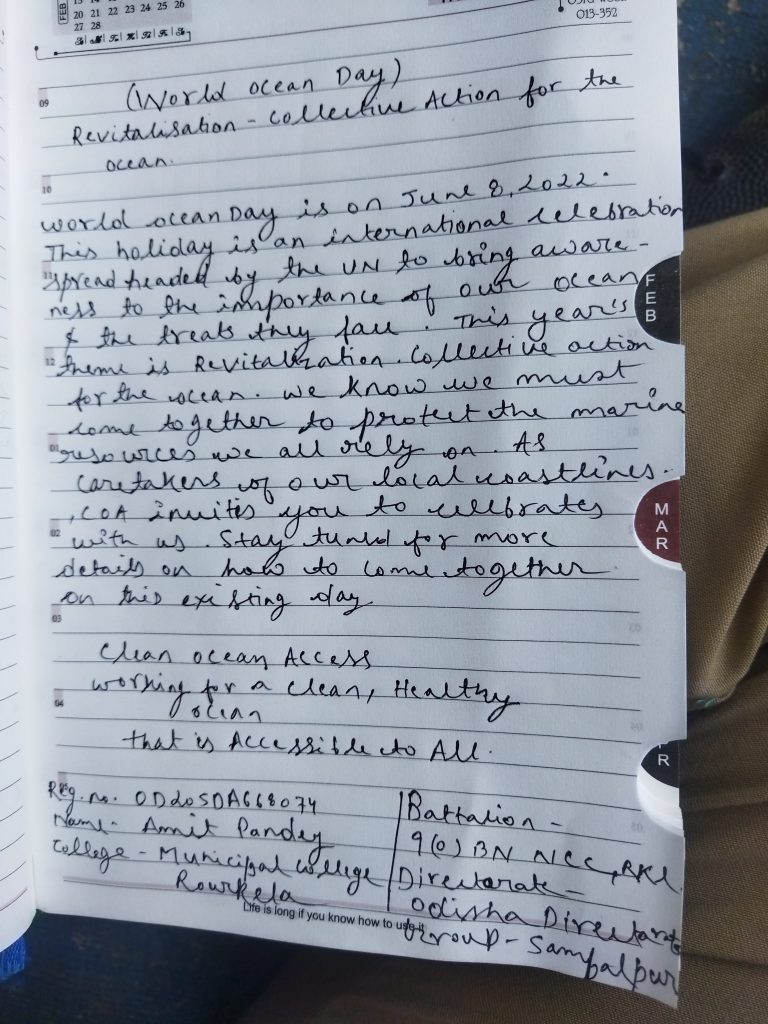 FEB
20 21 22 23 24 25 26
27 28
013-352
09
(World ocean Day)
Revitalisation - Collective Action for the
ocean.
10
world ocean Day is on June 8, 2022.
This holiday is an international celebration
11
spread headed by the UN to bring aware-
ness to the importance of our ocean
& the treats they face. This year's
12
theme is Revitalization. Collective action
for the ocean. we know we must
come together to protect the marine
01
resources we all rely on. As
caretakers of our local coastlines.
, COA invites you to celebrates
02
with us. Stay tuned for more
details on how to come together
on this existing day
03
Clean ocean Access
working for a clean, Healthy
04
ocean
that is Accessible to All.
FEB
MAR
R
Reg. no. OD20SDA668074
Name - Amit Pandey
College - Municipal college
Rourkela
Battalion -
9(O) BN NCC, RKL
Directorate -
Odisha Directorate
Group - Sambalpur
Life is long if you know how to use it